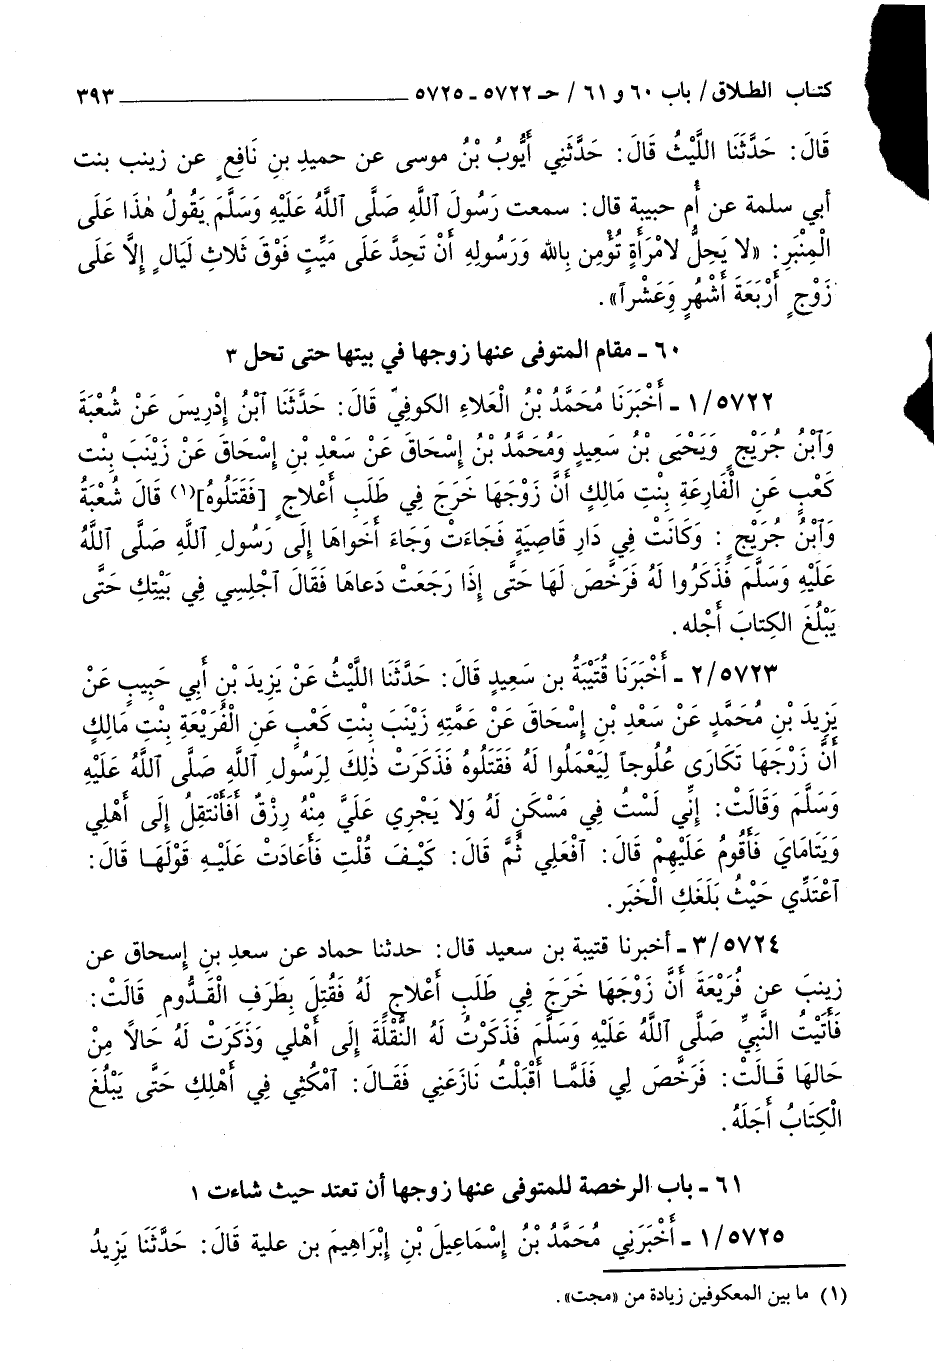 كتاب الطلاق / باب ٦٠ و ٦١ / حـ ٥٧٢٢ ـ ٥٧٢٥ ٣٩٣
قَالَ: حَدَّثَنَا اللَّيْثُ قَالَ: حَدَّثَنِي أَيُّوبُ بْنُ موسى عن حميدِ بنِ نَافِعٍ عن زينب بنت
أبي سلمة عن أُم حبيبة قال: سمعت رَسُولَ ٱللَّهِ صَلَّى ٱللَّهُ عَلَيْهِ وَسَلَّمَ يَقُولُ هٰذَا عَلَى
الْمِنْبَرِ: «لا يَحِلُّ لامْرَأَةٍ تُؤْمِن بِالله وَرَسُولِهِ أَنْ تَحِدَّ عَلَى مَيِّتٍ فَوْقَ ثَلاثِ لَيَالٍ إِلاَّ عَلَى
زَوْجٍ أَرْبَعَةَ أَشْهُرٍ وَعَشْراً».
٦٠ ـ مقام المتوفى عنها زوجها في بيتها حتى تحل ٣
١/٥٧٢٢ ـ أَخْبَرَنَا مُحَمَّدُ بْنُ الْعَلاءِ الكوفيّ قَالَ: حَدَّثَنَا ٱبْنُ إِدْرِيسَ عَنْ شُعْبَةَ
وَٱبْنُ جُرَيْجٍ وَيَحْيَى بْنُ سَعِيدٍ وَمُحَمَّدُ بْنُ إِسْحَاقَ عَنْ سَعْدِ بْنِ إِسْحَاقَ عَنْ زَيْنَبَ بِنْت
كَعْبٍ عَنِ الْفَارِعَةِ بِنْتِ مَالِكٍ أَنَّ زَوْجَهَا خَرَجَ فِي طَلَبِ أَعْلاجٍ [فَقَتَلُوهُ](١) قَالَ شُعْبَةُ
وَٱبْنُ جُرَيْجٍ: وَكَانَتْ فِي دَارٍ قَاصِيَةٍ فَجَاءَتْ وَجَاءَ أَخواهَا إِلَى رَسُولِ ٱللَّهِ صَلَّى ٱللَّهُ
عَلَيْهِ وَسَلَّمَ فَذَكَرُوا لَهُ فَرَخَّصَ لَهَا حَتَّى إِذَا رَجَعَتْ دَعاهَا فَقَالَ ٱجْلِسِي فِي بَيْتِكِ حَتَّى
يَبْلُغَ الكِتابَ أَجْله.
٢/٥٧٢٣ ـ أَخْبَرَنَا قُتَيْبَةُ بن سَعِيدٍ قَالَ: حَدَّثَنَا اللَّيْثُ عَنْ يَزِيدَ بْنِ أَبِي حَبِيبٍ عَنْ
يَزِيدَ بْنِ مُحَمَّدٍ عَنْ سَعْدِ بْنِ إِسْحَاقَ عَنْ عَمَّتِهِ زَيْنَبَ بِنْتِ كَعْبٍ عَنِ الْفُرَيْعَةِ بِنْتِ مَالِكٍ
أَنَّ زَرْجَهَا تَكَارَى عُلُوجاً لِيَعْمَلُوا لَهُ فَقَتَلُوهُ فَذَكَرَتْ ذٰلِكَ لِرَسُولِ ٱللَّهِ صَلَّى ٱللَّهُ عَلَيْهِ
وَسَلَّمَ وَقَالَتْ: إِنِّي لَسْتُ فِي مَسْكَنٍ لَهُ وَلا يَجْرِي عَلَيَّ مِنْهُ رِزْقٌ أَفَأَنْتَقِلُ إِلَى أَهْلِي
وَيَتَامَايَ فَأَقُومُ عَلَيْهِمْ قَالَ: ٱفْعَلِي ثُمَّ قَالَ: كَيْفَ قُلْتِ فَأَعَادَتْ عَلَيْهِ قَوْلَهَا قَالَ:
ٱعْتَدِّي حَيْثُ بَلَغَكِ الْخَبَر.
٣/٥٧٢٤ ـ أخبرنا قتيبة بن سعيد قال: حدثنا حماد عن سعدِ بنِ إسحاق عن
زينبَ عن فُرَيْعَةَ أَنَّ زَوْجَهَا خَرَجَ فِي طَلَبِ أَعْلاجٍ لَهُ فَقُتِلَ بِطَرَفِ الْقَدُّومِ قَالَتْ:
فَأَتَيْتُ النَّبِيِّ صَلَّى ٱللَّهُ عَلَيْهِ وَسَلَّمَ فَذَكَرْتُ لَهُ النُّقْلَةَ إِلَى أَهْلِي وَذَكَرَتْ لَهُ حَالاً مِنْ
حَالهَا قَالَتْ: فَرَخَّصَ لِي فَلَمَّا أَقْبَلْتُ نَازَعَنِي فَقَالَ: ٱمْكُثِي فِي أَهْلِكِ حَتَّى يَبْلُغَ
الْكِتَابُ أَجَلَهُ.
٦١ ـ باب الرخصة للمتوفى عنها زوجها أن تعتد حيث شاءت ١
١/٥٧٢٥ ـ أَخْبَرَنِي مُحَمَّدُ بْنُ إِسْمَاعِيلَ بْنِ إِبْرَاهِيمَ بن علية قَالَ: حَدَّثَنَا يَزِيدُ
(١) ما بين المعكوفين زيادة من «مجت».